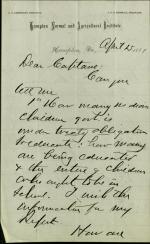 Hampton Normal and Agricultural Institute,
Hampton, Va., April 23, 18
Dear Captain:
Can you
tell me
1st How many Indian
children govt is
under treaty obligation
to educate; how many
are being educated
& the entire # children
who ought to be in
school. I want this
information for my
report.
How are